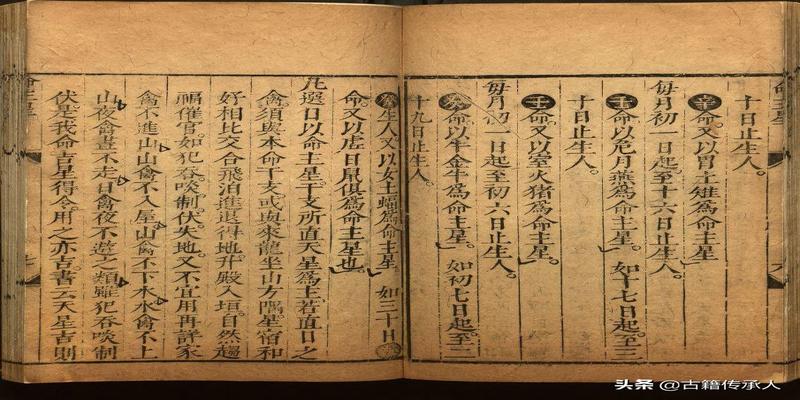 十日止生人。
辛命又以胃土雉為命主星
每月初一日起至十六日止生人。
壬命以危月燕為命主星。如十七日起至三
十日止生人。
壬命又以室火猪為命主星。
每月初一日起至初六日止生人。
癸命以牛金牛為命主星。如初七日起至二
十九日止生人。
癸生人又以女土蝠為命主星。如三十日
命又以虛日鼠俱為命主星也。
凡選日以命主星。干支所直天星為主。若直日之
禽須與本命干支或與來龍坐山方隅星宿和
好相比交合飛泊進退得地升殿入垣。自然趨
福催官。如犯吞啖制伏。失地。又不宜用再詳家
禽不進山山禽不入屋山禽不下水水禽不上
山夜禽晝不走日禽夜不遊之類雖犯吞啖制
伏是我命吉星得令用之亦吉。書云天星吉則
命主星
命主星
头条 @古籍传承人